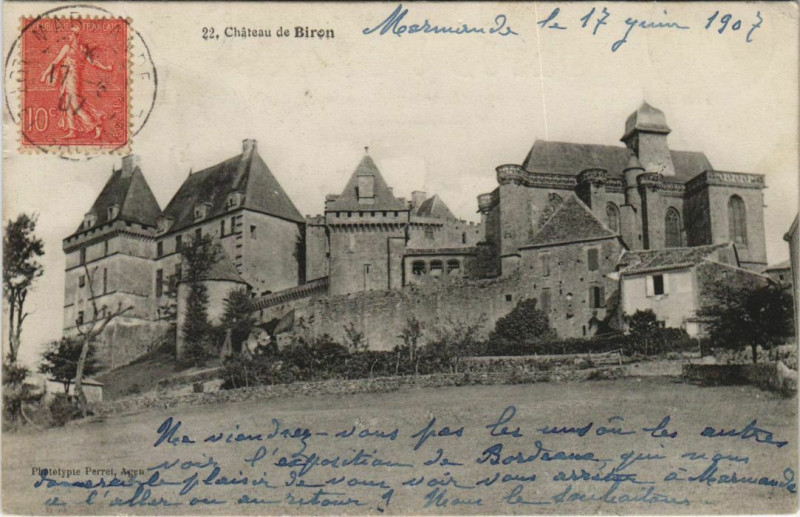 RÉPUBLIQUE FRANÇAISE
10c
17 6 07
22, Château de Biron
Marmande le 17 juin 1907
Ne viendrez-vous pas les uns ou les autres
voir l'exposition de Bordeaux, qui nous
donnerait le plaisir de vous voir vous arrêter à Marmande
à l'aller ou au retour ? Nous le souhaitons
Phototypie Perret, Agen